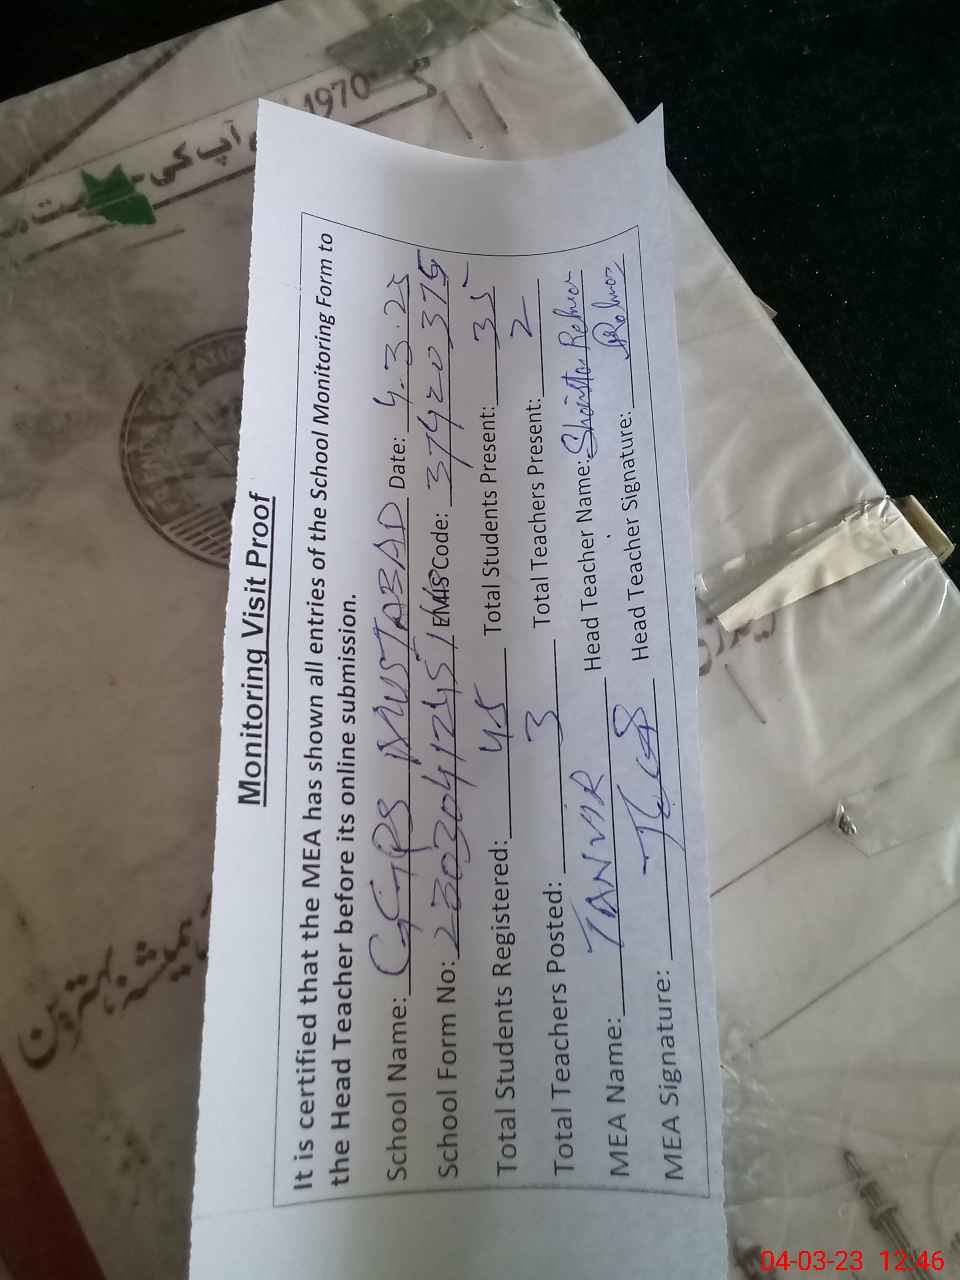 Monitoring Visit Proof
It is certified that the MEA has shown all entries of the School Monitoring Form to
the Head Teacher before its online submission.
School Name: GGPS MUSTABAD Date: 4.3.23
School Form No: EMIS Code: 37420375
Total Students Registered: 45 Total Students Present: 35
Total Teachers Posted: 3 Total Teachers Present: 2
MEA Name: TANVIR Head Teacher Name: Shaista Rehman
MEA Signature: Head Teacher Signature:
1970
آپ کی
بہترین
ہمیشہ
04-03-23 12:46